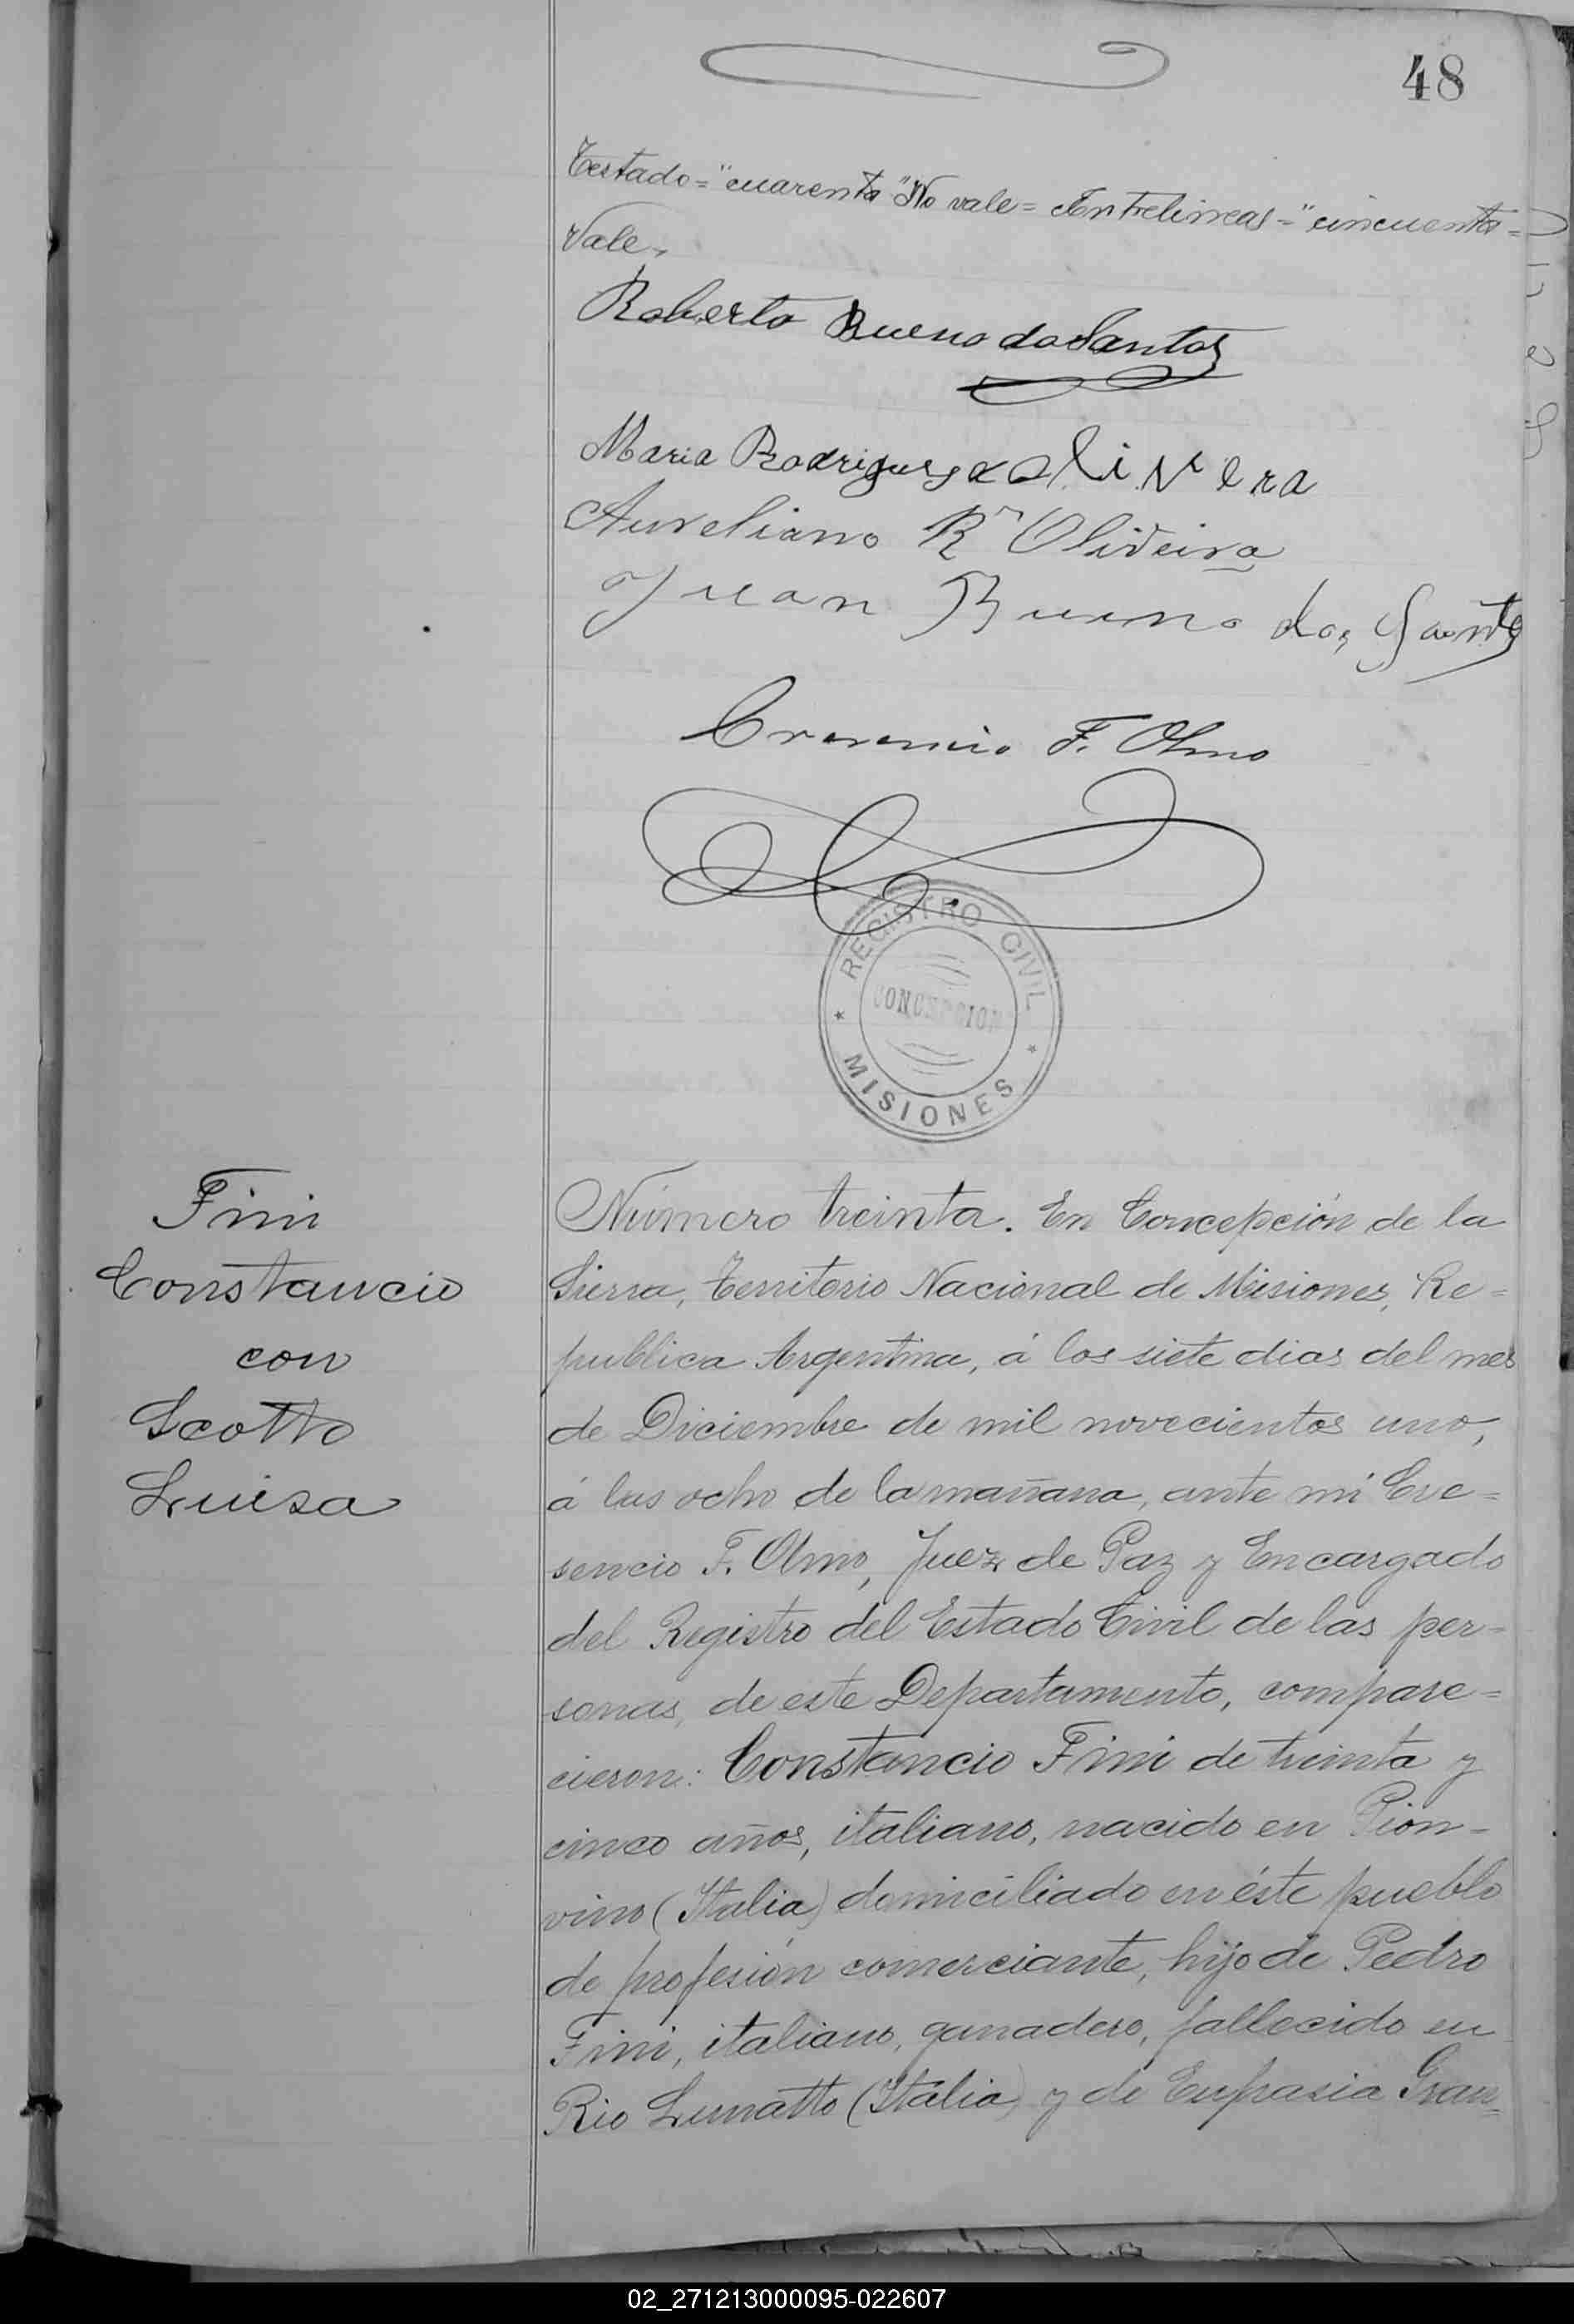 48
Testado="cuarenta" No vale= Entrelineas="cincuenta=
Vale.
Roberto Bueno dos Santos
Maria Rodrigues olivera
Aureliano Rº Oliveira
Juan Bueno dos Santos
Cresencio F. Olmo
REGISTRO CIVIL
CONCEPCION
MISIONES
Fini
Constancio
con
Scotto
Luisa
Número treinta. En Concepción de la
Sierra, Territorio Nacional de Misiones, Re=
publica Argentina, á los siete dias del mes
de Diciembre de mil novecientos uno,
á las ocho de la mañana, ante mí Cre=
sencio F. Olmo, Juez de Paz y Encargado
del Registro del Estado Civil de las per=
sonas, de este Departamento, compare=
cieron: Constancio Fini de treinta y
cinco años, italiano, nacido en Pion=
vino (Italia) domiciliado en éste pueblo
de profesión comerciante, hijo de Pedro
Fini, italiano, ganadero, fallecido en
Rio (Italia) y de Eufrasia Gran=
02_271213000095-022607